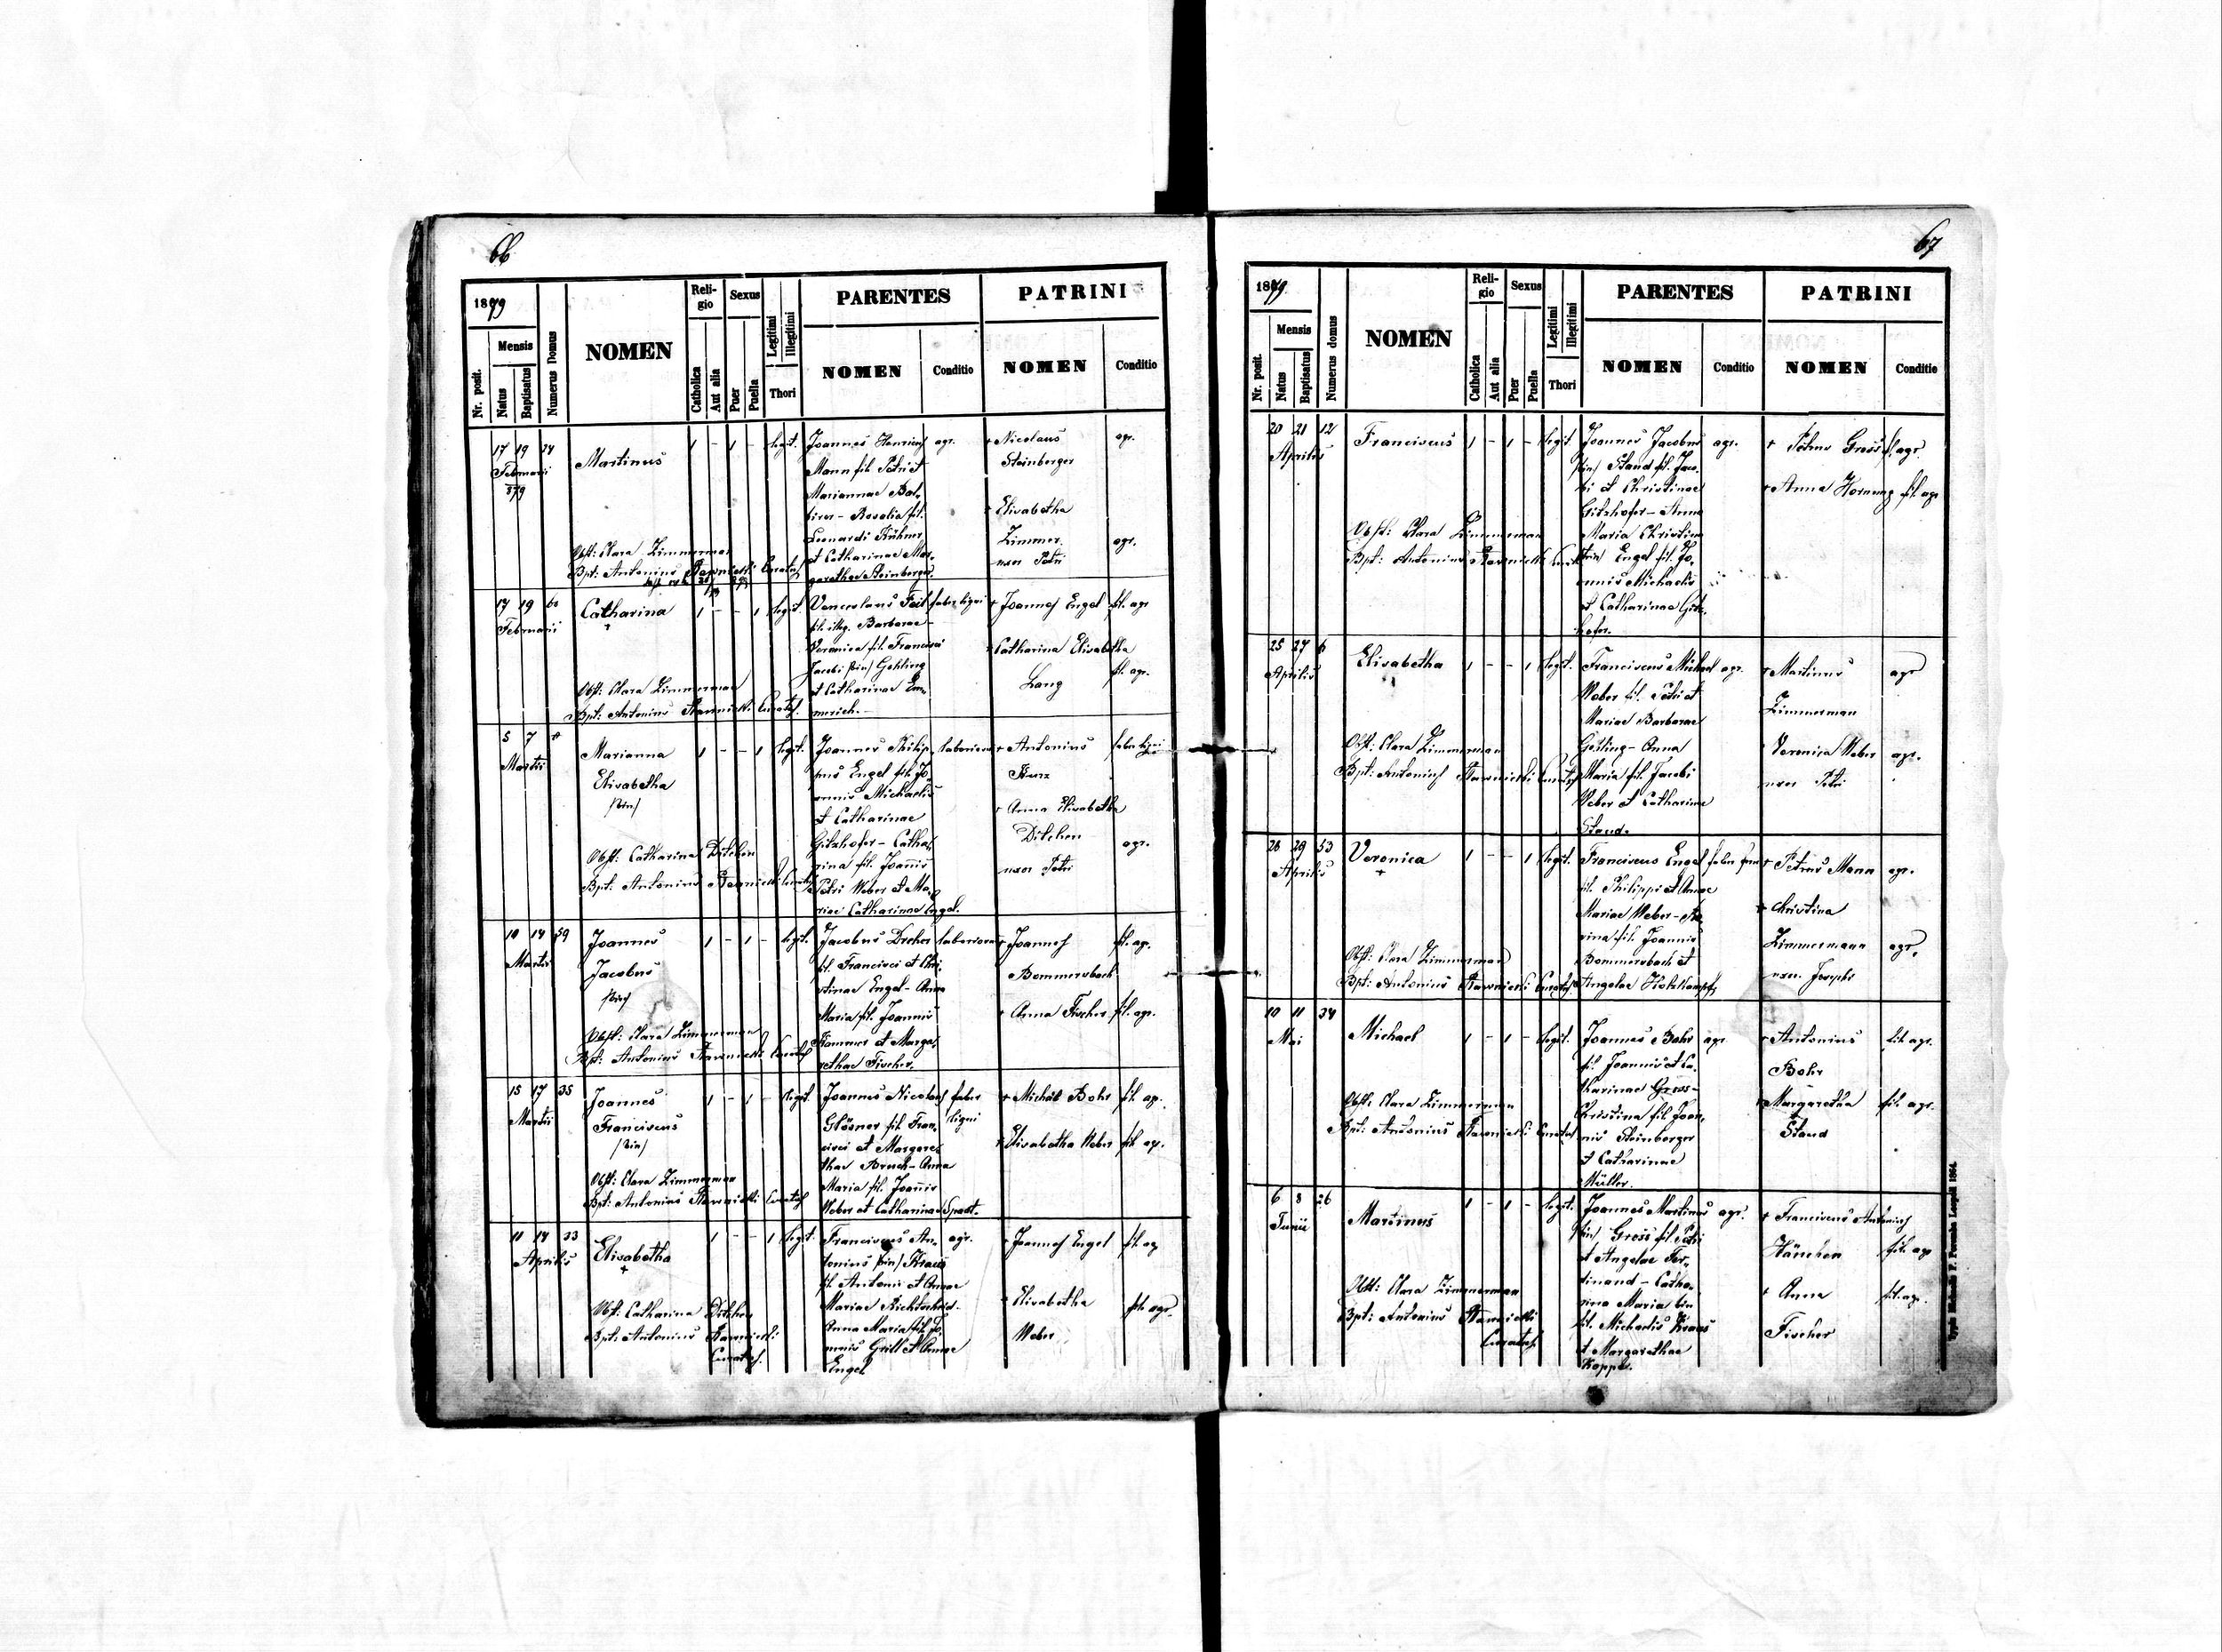 66
1879
Nr. posit.
Mensis
Natus
Baptisatus
Numerus Domus
NOMEN
Religio
Catholica
Aut alia
Sexus
Puer
Puella
Legitimi
Illegitimi
Thori
PARENTES
NOMEN
Conditio
PATRINI
NOMEN
Conditio
17 19 34
Februarii
879
Martinus
1 - 1 - legit.
Joannes Henricus agr.
Mann fil. Petri et
Mariannae Bal-
birer - Rosalia fil.
Leonardi Kühner
et Catharinae Mar-
garethae Steinberger.
+ Nicolaus agr.
Steinberger
+ Elisabetha
Zimmer. agr.
uxor Petri
Obst: Clara Zimmerman
Bpt: Antonius Curatus
17 19 60
Februarii
Catharina
+
1 - - 1 legit.
Venceslaus Feit faber ligni
fil. illeg. Barbarae -
Veronica fil. Francisci
Jacobi /bin/ Gehling
et Catharinae Em-
merich. -
+ Joannes Engel fil. agr
+ Catharina Elisabetha
Lang fil. agr.
Obst: Clara Zimmerman
Bpt: Antonius Curatus
5 7
Martii
Marianna
Elisabetha
/bin/
1 - - 1 legit.
Joannes Philip-
pus Engel fil. Jo-
annis Michaelis
et Catharinae
Gitzhofer - Catha-
rina fil. Joannis
Petri Weber et Ma-
riae Catharinae Engel.
+ Antonius faber ligni
Kurz
+ Anna Elisabetha
Ditchen agr.
uxor Petri
Obst: Catharina Ditchen
Bpt: Antonius Curatus
10 14 59
Martii
Joannes
Jacobus
/bin/
1 - 1 - legit.
Jacobus Drcher
fil. Francisci et Chri-
stinae Engel - Anna
Maria fil. Joannis
Kommer et Marga-
rethae Fischer.
+ Joannes fil. ag.
Bommersbach
+ Anna Fischer fil. agr.
Obst: Clara Zimmerman
Bpt: Antonius Curatus
15 17 35
Martii
Joannes
Franciscus
/bin/
1 - 1 - legit.
Joannes Nicolaus faber
Glösner fil. Fran- ligni
cisci et Margare-
thae Bruch - Anna
Maria fil. Joannis
Weber et Catharinae Spast.
+ Michael Bohr fil. ag.
+ Elisabetha Weber fil. ag.
Obst: Clara Zimmerman
Bpt: Antonius Curatus
11 14 33
Aprilis
Elisabetha
+
1 - - 1 legit.
Franciscus An- agr.
tonius /bin/ Kraus
fil. Antonii et Annae
Mariae Richtscheid -
Anna Maria fil. Jo-
annis Grill et Annae
Engel
+ Joannes Engel fil. ag
+ Elisabetha fil. agr.
Weber
Obst: Catharina Ditchen
Bpt: Antonius
Curatus.
67
1879
Nr. posit.
Mensis
Natus
Baptisatus
Numerus domus
NOMEN
Religio
Catholica
Aut alia
Sexus
Puer
Puella
Legitimi
Illegitimi
Thori
PARENTES
NOMEN
Conditio
PATRINI
NOMEN
Conditio
20 21 12
Aprilis
Franciscus
1 - 1 - legit
Joannes Jacobus agr.
/bin/ Stand fil. Jaco-
bi et Christinae
Gitzhofer - Anna
Maria Christina
/trin/ Engel fil. Jo-
annis Michaelis
et Catharinae Gitz-
hofer.
+ Petrus Gross f. agr.
+ Anna Hornung fil. agr
Obst: Clara Zimmerman
Bpt: Antonius
25 27 6
Aprilis
Elisabetha
1 - - 1 legit.
Franciscus Michael agr.
Weber fil. Petri et
Mariae Barbarae
Gehling - Anna
Maria fil. Jacobi
Weber et Catharinae
Stand.
+ Martinus agr
Zimmerman
+ Veronica Weber agr.
uxor Petri
Obst: Clara Zimmerman
Bpt: Antonius Curatus
28 29 53
Aprilis
Veronica
+
1 - - 1 legit.
Franciscus Engel
fil. Philippi et Annae
Mariae Weber -
rina fil. Joannis
Bommersbach et
Angelae Hohlkampf,
+ Petrus Mann agr.
+ Christina
Zimmermann agr.
uxor. Josephi
Obst: Clara Zimmerman
Bpt: Antonius Curatus
10 11 34
Mai
Michael
1 - 1 - legit.
Joannes Bohr agr
fil. Joannis et Ca-
tharinae Gross -
Christina fil. Joan-
nis Steinberger
et Catharinae
Müller.
+ Antonius fil. agr.
Bohr
+ Margaretha fil. agr.
Stand
Obst: Clara Zimmerman
Bpt: Antonius Curatus
6 8 26
Junii
Martinus
1 - 1 - legit.
Joannes Martinus agr.
/bin/ Gross fil. Petri
et Angelae Fer-
dinand - Catha-
rina Maria bin
fil. Michaelis Kraus
et Margarethae
Koppel.
+ Franciscus Antonius
Hänchen fil. agr
+ Anna fil. ag.
Fischer
Obst: Clara Zimmerman
Bpt: Antonius
Curatus.